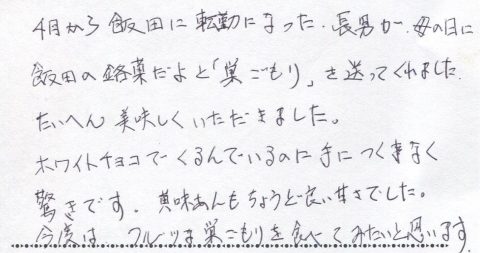 4月から飯田に転勤になった、長男が、母の日に
飯田の銘菓だよと「巣ごもり」を送ってくれました。
たいへん美味しくいただきました。
ホワイトチョコでくるんでいるのに手につく事なく
驚きです。黄味あんもちょうど良い甘さでした。
今度は、フルーツ巣ごもりを食べてみたいと思います。